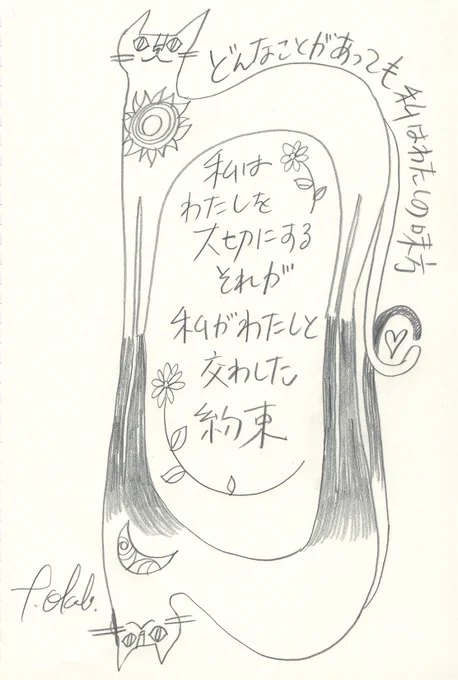 どんなことがあっても私はわたしの味方
私は
わたしを
大切にする
それが
私がわたしと
交わした
約束